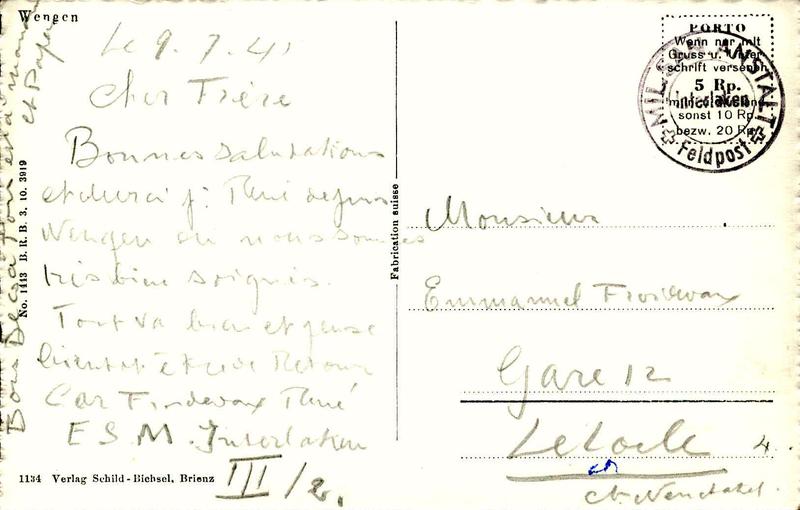 Wengen
Le 9. 7. 41
Cher Frère
Bonnes salutations
René depuis
Wengen ou nous sommes
très bien soignés.
Tout va bien et pense
bientôt être de Retour
Car Froidevaux René
E S M. Interlaken
III / 2.
Bons Becs a
et Papa
No. 1143 B. R. B. 3. 10. 3919
1134 Verlag Schild-Bichsel, Brienz
Fabrication suisse
PORTO
Wenn nur mit
Gruss u. Unter-
schrift versehen
5 Rp.
sonst 10 Rp.
bezw. 20 Rp.
MILIT. ANSTALT
Interlaken
Feldpost
Monsieur
Emmanuel Froidevaux
Gare 12
Le Locle 4.
ct. Neuchatel.